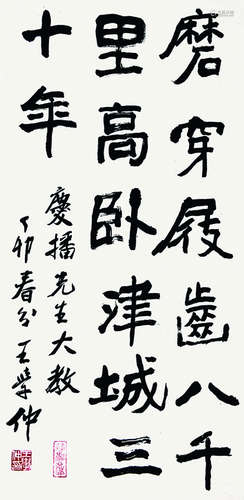 磨穿屐齒八千
里高卧津城三
十年
慶播先生大教
丁卯春分王學仲